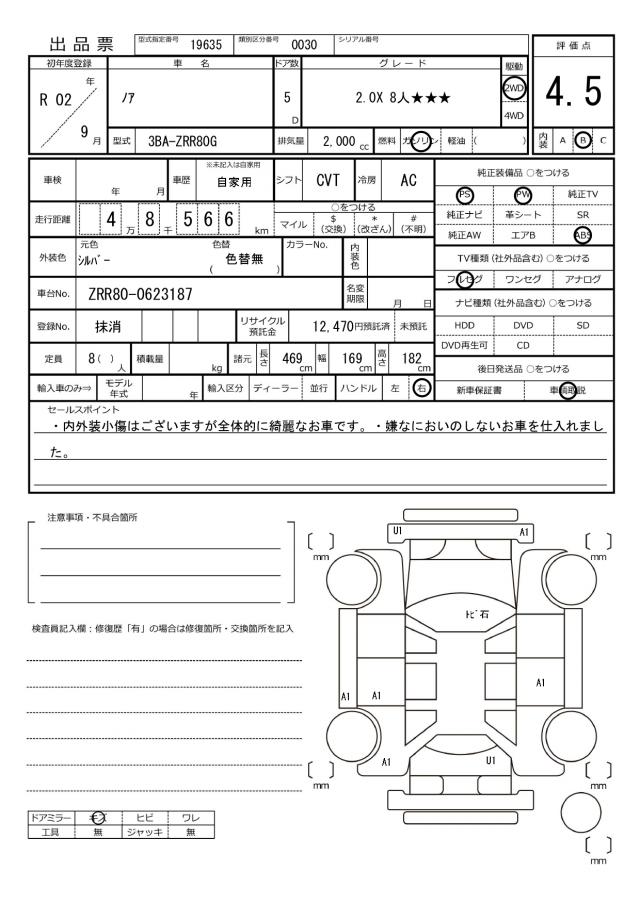 出品票
型式指定番号 19635 類別区分番号 0030 シリアル番号
評価点
4.5
内装 A B C
初年度登録 車名 ドア数 グレード 駆動
R 02 年 9 月
ノア
5 D
2.0X 8人★★★
2WD
4WD
型式 3BA-ZRR80G 排気量 2,000 cc 燃料 ガソリン 軽油 ( )
車検 年 月 車歴 ※未記入は自家用 自家用 シフト CVT 冷房 AC
走行距離 4 万 8 千 5 6 6 km
○をつける
マイル $ (交換) * (改ざん) # (不明)
外装色 元色 シルバー 色替 ( 色替無 ) カラーNo. 内装色
車台No. ZRR80-0623187 名変期限 月 日
登録No. 抹消 リサイクル預託金 12,470円預託済 未預託
定員 8( ) 人 積載量 kg 諸元 長さ 469 cm 幅 169 cm 高さ 182 cm
輸入車のみ⇒ モデル年式 年 輸入区分 ディーラー 並行 ハンドル 左 右
純正装備品 ○をつける
PS PW 純正TV
純正ナビ 革シート SR
純正AW エアB ABS
TV種類 (社外品含む) ○をつける
フルセグ ワンセグ アナログ
ナビ種類 (社外品含む) ○をつける
HDD DVD SD
DVD再生可 CD
後日発送品 ○をつける
新車保証書 車輌取説
セールスポイント
・内外装小傷はございますが全体的に綺麗なお車です。・嫌なにおいのしないお車を仕入れまし
た。
注意事項・不具合箇所
検査員記入欄：修復歴「有」の場合は修復箇所・交換箇所を記入
ドアミラー キズ ヒビ ワレ
工具 無 ジャッキ 無
U1 A1
mm mm
トビ石
A1 A1 A1
A1 U1
mm mm
mm